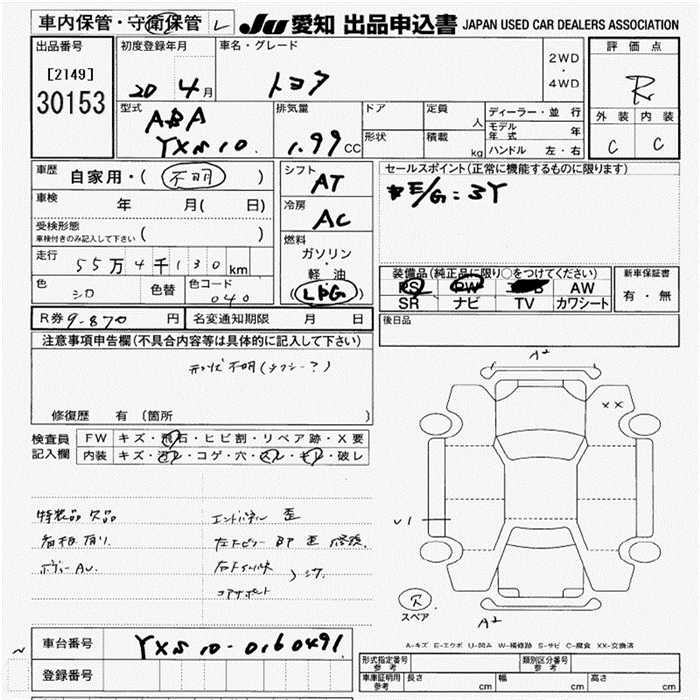 車内保管・守衛保管 レ JU 愛知 出品申込書 JAPAN USED CAR DEALERS ASSOCIATION
出品番号
[2149]
30153
初度登録年月
20 4月
車名・グレード
トヨタ
2WD
・
4WD
評価点
R
外装 内装
C C
型式
ABA
YXS10.
排気量
1.99 CC
ドア
定員 人
形状
積載 kg
ディーラー・並行
モデル年式 年
ハンドル 左・右
車歴
自家用・( 不明 )
車検 年 月( 日)
受検形態
車検付きのみ記入して下さい ( )
走行
55万4千130km
色 シロ 色替 色コード 040
シフト
AT
冷房
AC
燃料
ガソリン
・
軽油
(LPG)
セールスポイント(正常に機能するものに限ります)
E/G:3Y
装備品(純正品に限り○をつけてください)
PS PW AW
SR ナビ TV カワシート
新車保証書
有・無
R券 9-870円 名変通知期限 月 日
後日品
注意事項申告欄(不具合内容等は具体的に記入して下さい)
形状不明(タクシー?)
修復歴 有(箇所 )
検査員
記入欄
FW キズ・飛石・ヒビ割・リペア跡・X要
内装 キズ・汚レ・コゲ・穴・スレ・キレ・破レ
特装品 欠品
看板有り
エンドパネル 歪
コアサポート
A2
XX
U1
A2
スペア
A-キズ E-エクボ U-凹み W-補修跡 S-サビ C-腐食 XX-交換済
車台番号 YXS10-0160491
登録番号
形式指定番号
参考
類別区分番号
参考
車庫証明用
参考
長さ cm 幅 cm 高さ cm